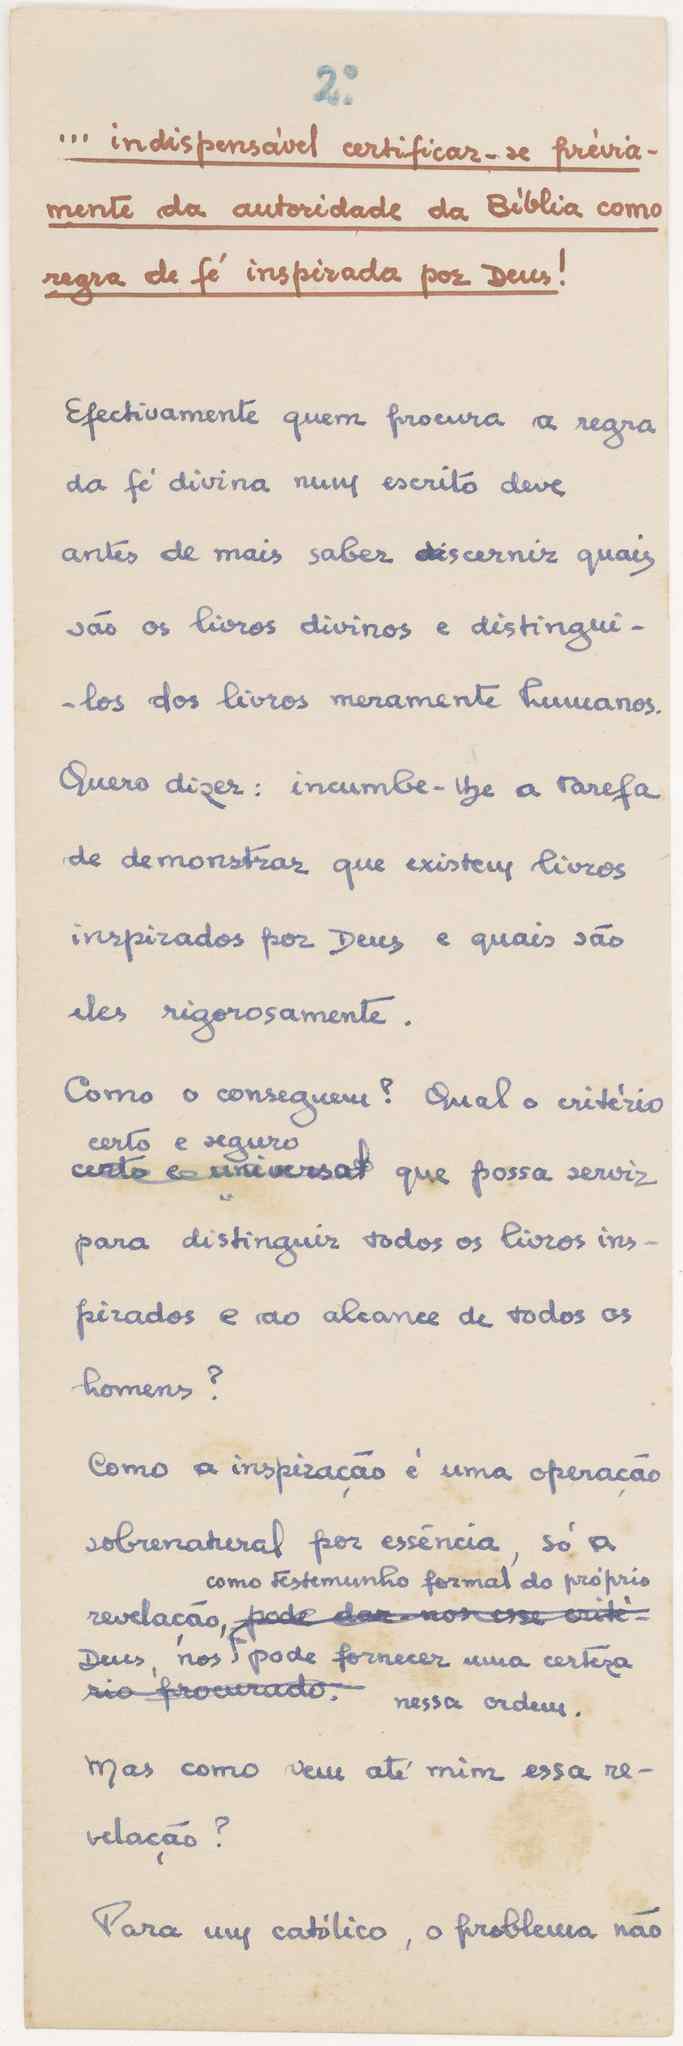 2º
... indispensável certificar-se prévia-
mente da autoridade da Bíblia como
regra de fé inspirada por Deus!
Efectivamente quem procura a regra
da fé divina num escrito deve
antes de mais saber discernir quais
são os livros divinos e distingui-
-los dos livros meramente humanos.
Quero dizer: incumbe-lhe a tarefa
de demonstrar que existem livros
inspirados por Deus e quais são
eles rigorosamente.
Como o conseguem? Qual o critério
certo e seguro
certo e universal que possa servir
para distinguir todos os livros ins-
pirados e ao alcance de todos os
homens?
Como a inspiração é uma operação
sobrenatural por essência, só a
como testemunho formal do próprio
revelação, pode dar-nos esse crité-
Deus, nos pode fornecer uma certeza
rio procurado. nessa ordem.
Mas como vem até mim essa re-
velação?
Para um católico, o problema não